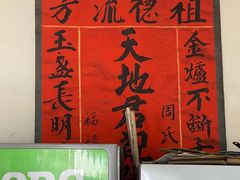 祖德流芳
天地君
金爐不斷
玉盞長明
周氏
福祿